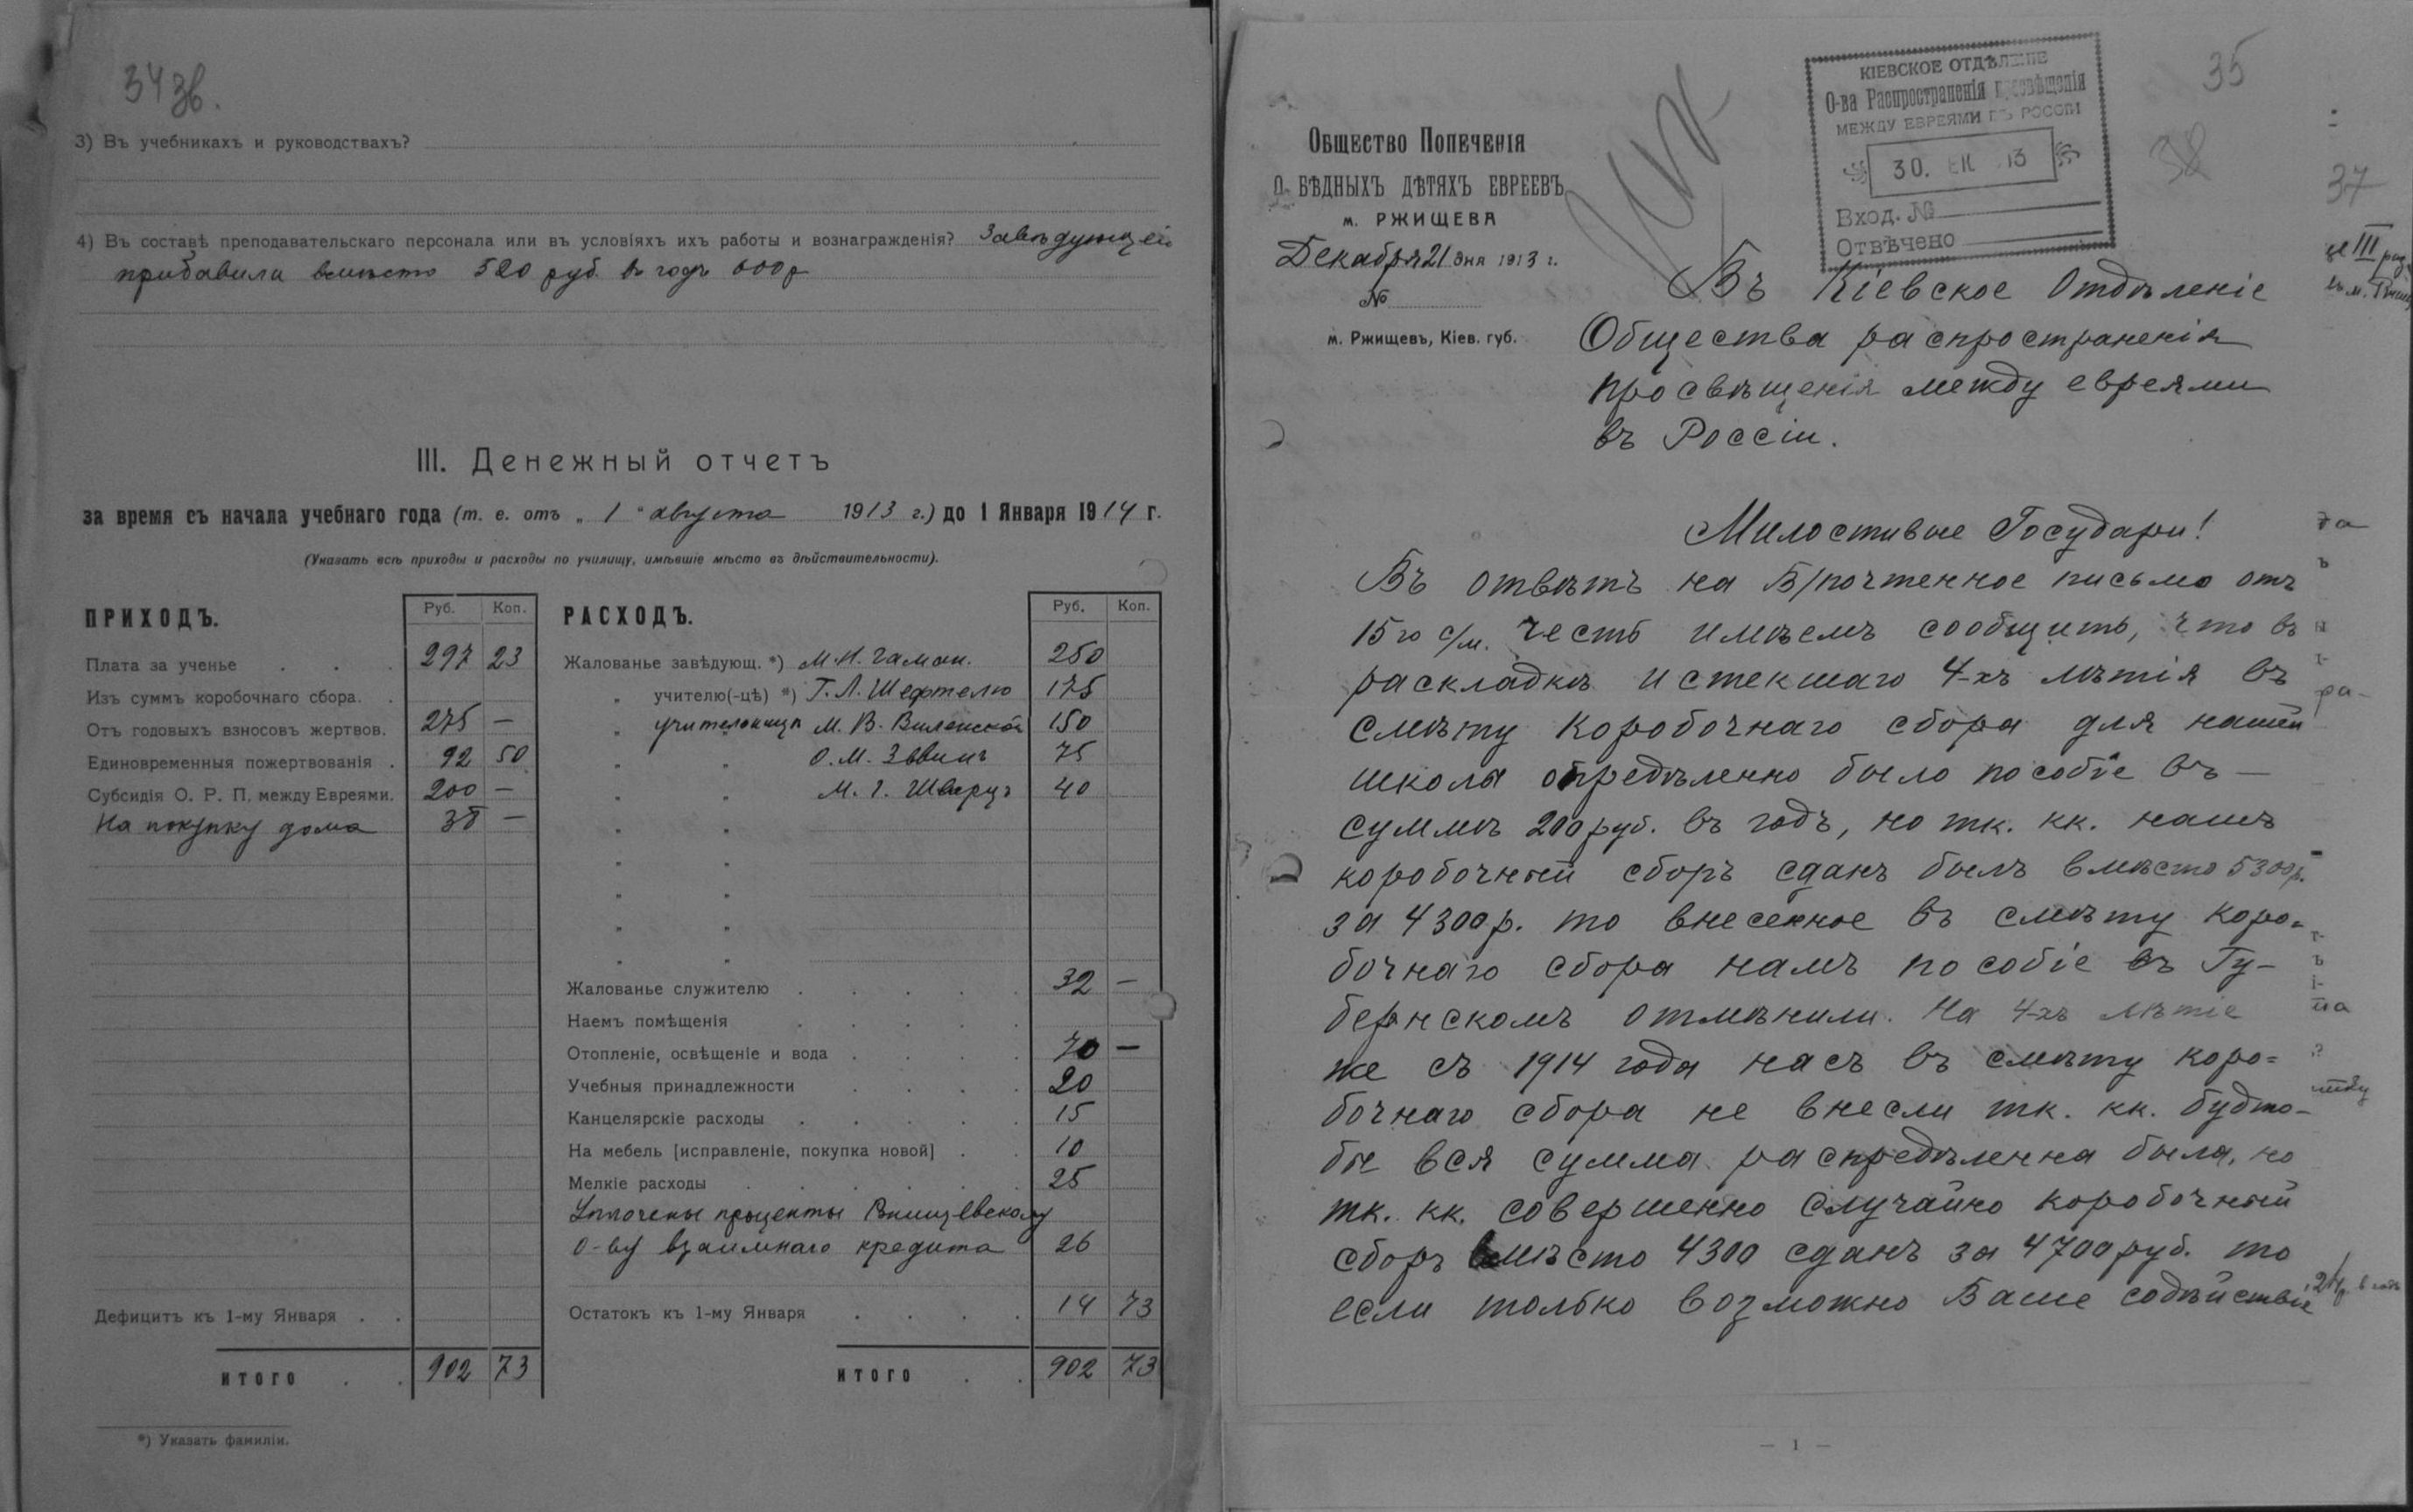 34 зв.
3) Въ учебникахъ и руководствахъ?
4) Въ составѣ преподавательскаго персонала или въ условіяхъ ихъ работы и вознагражденія? Завѣдующей
прибавили вмѣсто 520 руб. въ годъ 600 р
III. Денежный отчетъ
за время съ начала учебнаго года (т. е. отъ „ 1 " августа 1913 г.) до 1 Января 1914 г.
(Указать всѣ приходы и расходы по училищу, имѣвшіе мѣсто въ дѣйствительности).
ПРИХОДЪ. Руб. Коп.
Плата за ученье . . . 297 23
Изъ суммъ коробочнаго сбора. .
Отъ годовыхъ взносовъ жертвов. 275 —
Единовременныя пожертвованія . 92 50
Субсидія О. Р. П. между Евреями. 200 —
На покупку дома 38 —
Дефицитъ къ 1-му Января . .
ИТОГО . . 902 73
РАСХОДЪ. Руб. Коп.
Жалованье завѣдующ. *) М. И. 250
„ учителю(-цѣ) *) Г. Л. Шефтелю 175
„ учительница М. В. Виленской 150
„ „ О. М. 75
„ „ М. Г. Шварцъ 40
„ „
„ „
„ „
„ „
„ „
Жалованье служителю . . . . . 32 —
Наемъ помѣщенія . . . . .
Отопленіе, освѣщеніе и вода . . . . 70 —
Учебныя принадлежности . . . . 20
Канцелярскіе расходы . . . . . 15
На мебель [исправленіе, покупка новой] . . 10
Мелкіе расходы . . . . . . 25
Уплочены проценты Ржищевскому
О-ву взаимнаго кредита 26
Остатокъ къ 1-му Января . . . . 14 73
ИТОГО . . 902 73
*) Указать фамиліи.
35
38
37
КІЕВСКОЕ ОТДѢЛЕНІЕ
О-ва Распространенія просвѣщенія
МЕЖДУ ЕВРЕЯМИ ВЪ РОССІИ
30. 13
Вход. №
Отвѣчено
Общество Попеченія
О БѢДНЫХЪ ДѢТЯХЪ ЕВРЕЕВЪ
м. РЖИЩЕВА
Декабря 21 дня 1913 г.
№
м. Ржищевъ, Кіев. губ.
Въ Кіевское Отдѣленіе
Общества распространенія
просвѣщенія между евреями
въ Россіи.
Милостивые Государи!
Въ отвѣтъ на В/почтенное письмо отъ
15го с/м. честь имѣемъ сообщить, что въ
раскладкѣ истекшаго 4-хъ лѣтія въ
смѣту коробочнаго сбора для нашей
школы опредѣленно было пособіе въ —
суммѣ 200 руб. въ годъ, но тк. кк. нашъ
коробочный сборъ сданъ былъ вмѣсто 5300 р.
за 4300 р. то внесенное въ смѣту коро=
бочнаго сбора намъ пособіе въ Гу-
бернскомъ отмѣнили. На 4-хъ лѣтіе
же съ 1914 года насъ въ смѣту коро=
бочнаго сбора не внесли тк. кк. будто-
бы вся сумма распредѣленна была, но
тк. кк. совершенно случайно коробочный
сборъ вмѣсто 4300 сданъ за 4700 руб. то
если только возможно Ваше содѣйствіе
— 1 —